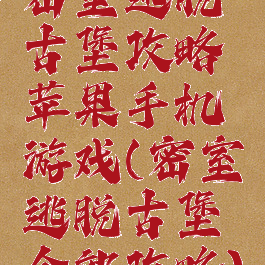 密室逃脱
古堡攻略
苹果手机
游戏(密室
逃脱古堡
全部攻略)